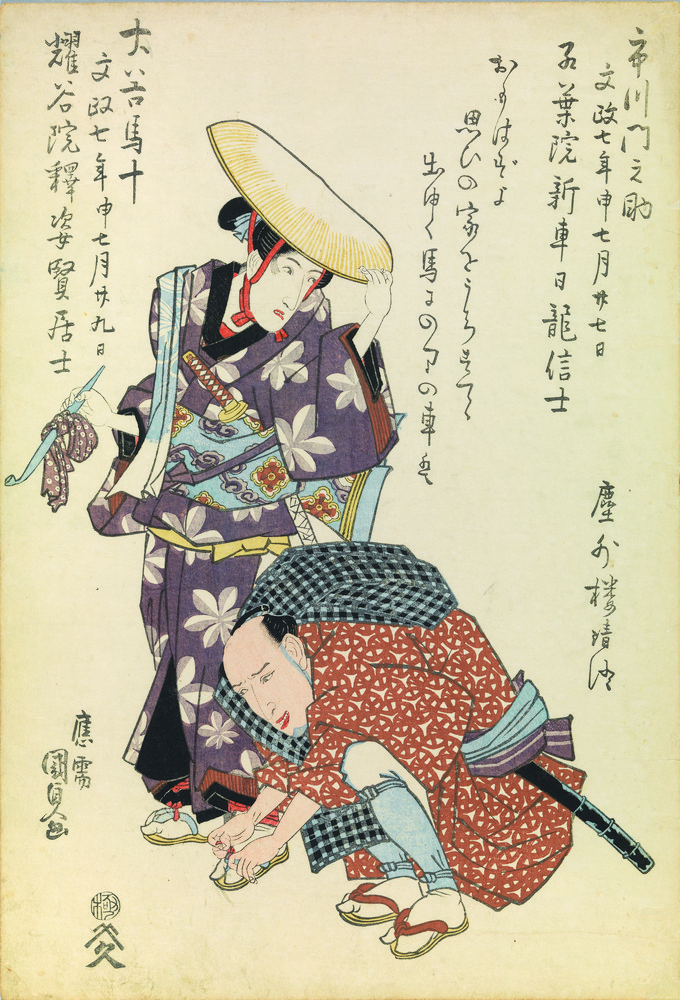 市川門之助
文政七年申七月廿七日
紅葉院新車日龍信士
おもはずよ
思ひの家をうち
出ゆく馬
の車
塵外楼
大谷馬十
文政七年申七月廿九日
耀谷院釋姿賢居士
應需
國貞画
極
久